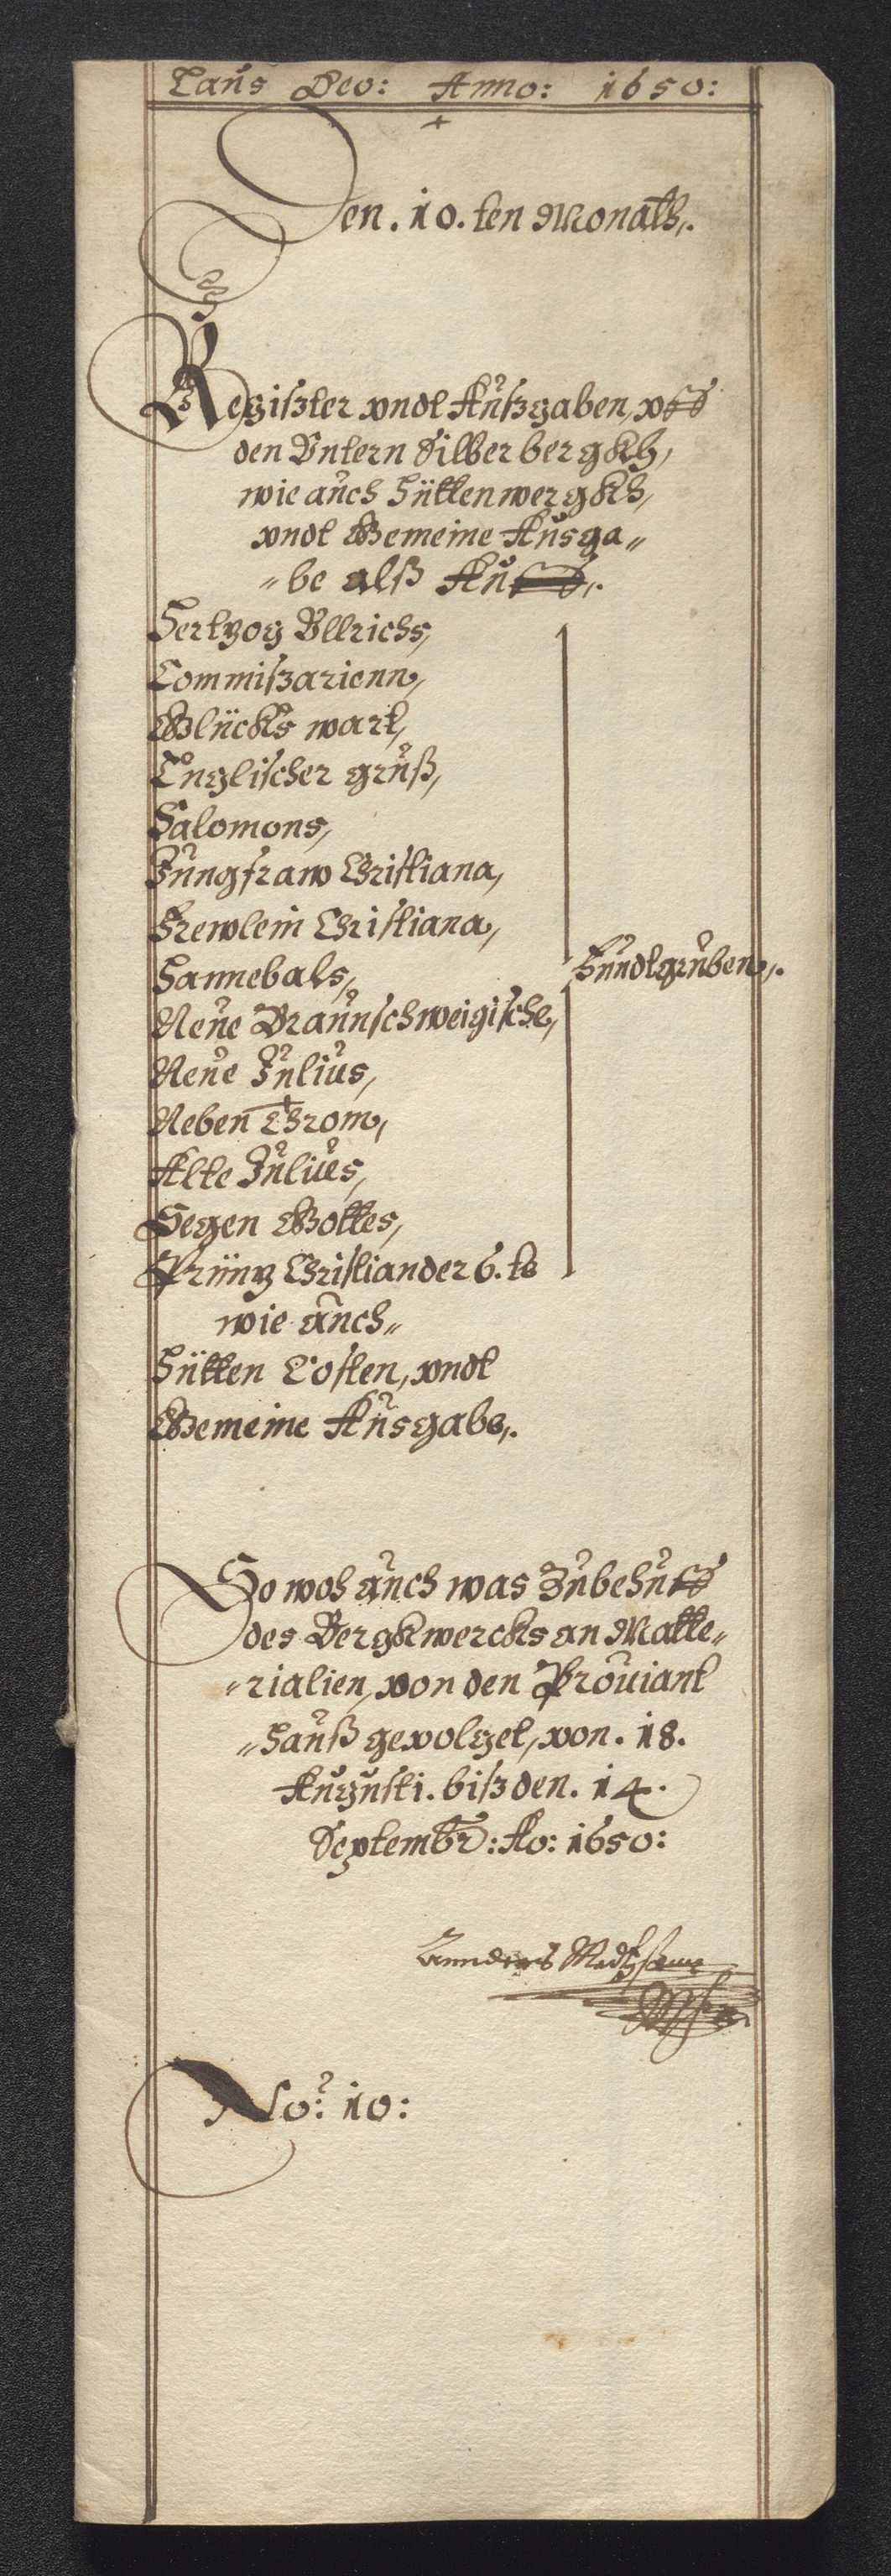 Laus Deo: Anno: 1650:
Den. 10. ten Monath,.
Regißter vndt Außgaben, vff
den Vntern Silberbergkh,
wie auch Hüttenwergkh,
vndt Gemeine Ausga„
„be alß Auff,.
Hertzog Vllrichs,
Commißarienn,
Glücks wart,
Englischer gruß,
Salomons,
Jungfraw Christiana,
Frewlein Christiana,
Hannebals,
Fundtgruben,.
Neue Braunschweigische,
Neue Julius,
Neben Chrom,
Alte Julius,
Segen Gottes,
Printz Christian der 6. te
wie auch„
Hütten Costen, vndt
Gemeine Ausgabe,.
So woh auch was Zubehuff
des Bergkwercks an Matte„
„rialien, von den Prouiant
„hauß gevolget, von. 18.
Augusti. biß den. 14.
Septembr: Ao: 1650:
No: 10: